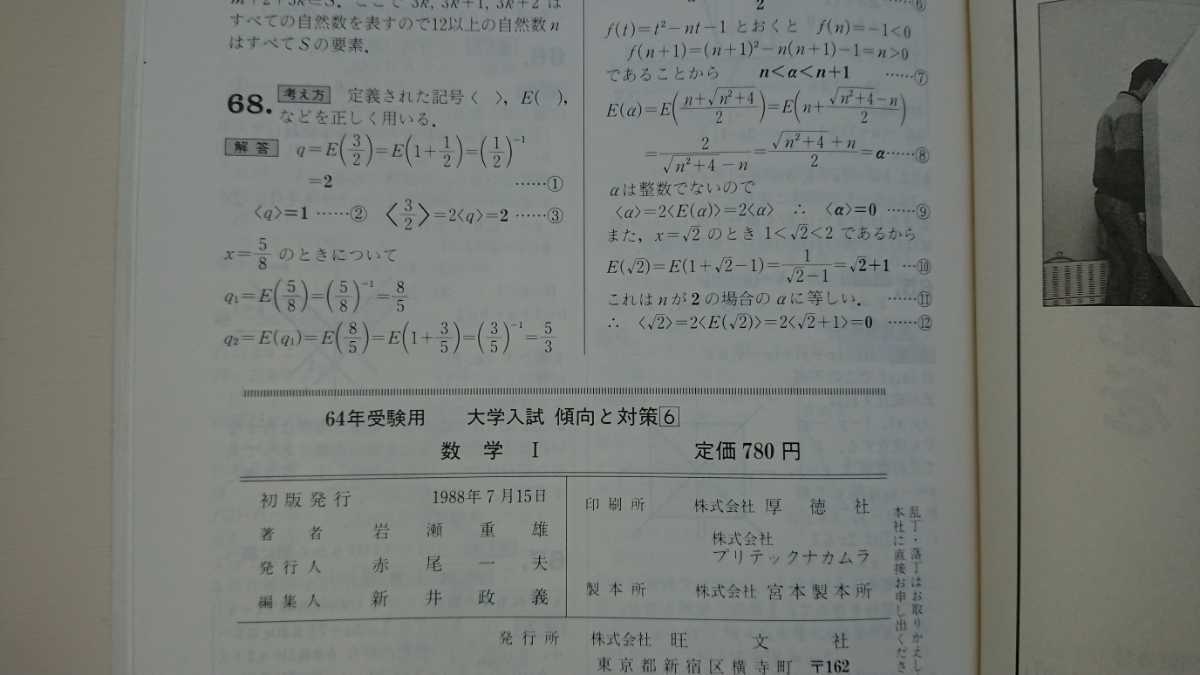 m+2+3k∈S．ここで 3k, 3k+1, 3k+2 は
すべての自然数を表すので12以上の自然数 n
はすべて S の要素．
68. 考え方 定義された記号〈 〉，E( )，
などを正しく用いる．
解答 q=E(3/2)=E(1+1/2)=(1/2)^-1
=2 ……①
〈q〉=1 ……② 〈3/2〉=2〈q〉=2 ……③
x=5/8 のときについて
q₁=E(5/8)=(5/8)^-1=8/5
q₂=E(q₁)=E(8/5)=E(1+3/5)=(3/5)^-1=5/3
2 ……⑥
f(t)=t²−nt−1 とおくと f(n)=−1<0
f(n+1)=(n+1)²−n(n+1)−1=n>0
であることから n<α<n+1 ……⑦
E(α)=E((n+√(n²+4))/2)=E(n+(√(n²+4)−n)/2)
=2/(√(n²+4)−n)=(√(n²+4)+n)/2=α……⑧
αは整数でないので
〈α〉=2〈E(α)〉=2〈α〉 ∴ 〈α〉=0 ……⑨
また，x=√2 のとき 1<√2<2 であるから
E(√2)=E(1+√2−1)=1/(√2−1)=√2+1 …⑩
これは n が 2 の場合の α に等しい． ……⑪
∴ 〈√2〉=2〈E(√2)〉=2〈√2+1〉=0 ……⑫
64年受験用 大学入試 傾向と対策6
数学 I 定価 780 円
初版発行 1988年7月15日
著者 岩瀬重雄
発行人 赤尾一夫
編集人 新井政義
印刷所 株式会社 厚徳社
株式会社
プリテックナカムラ
製本所 株式会社 宮本製本所
発行所 株式会社 旺文社
東京都新宿区横寺町 〒162
乱丁・落丁はお取りかえし
本社に直接お申し出くださ